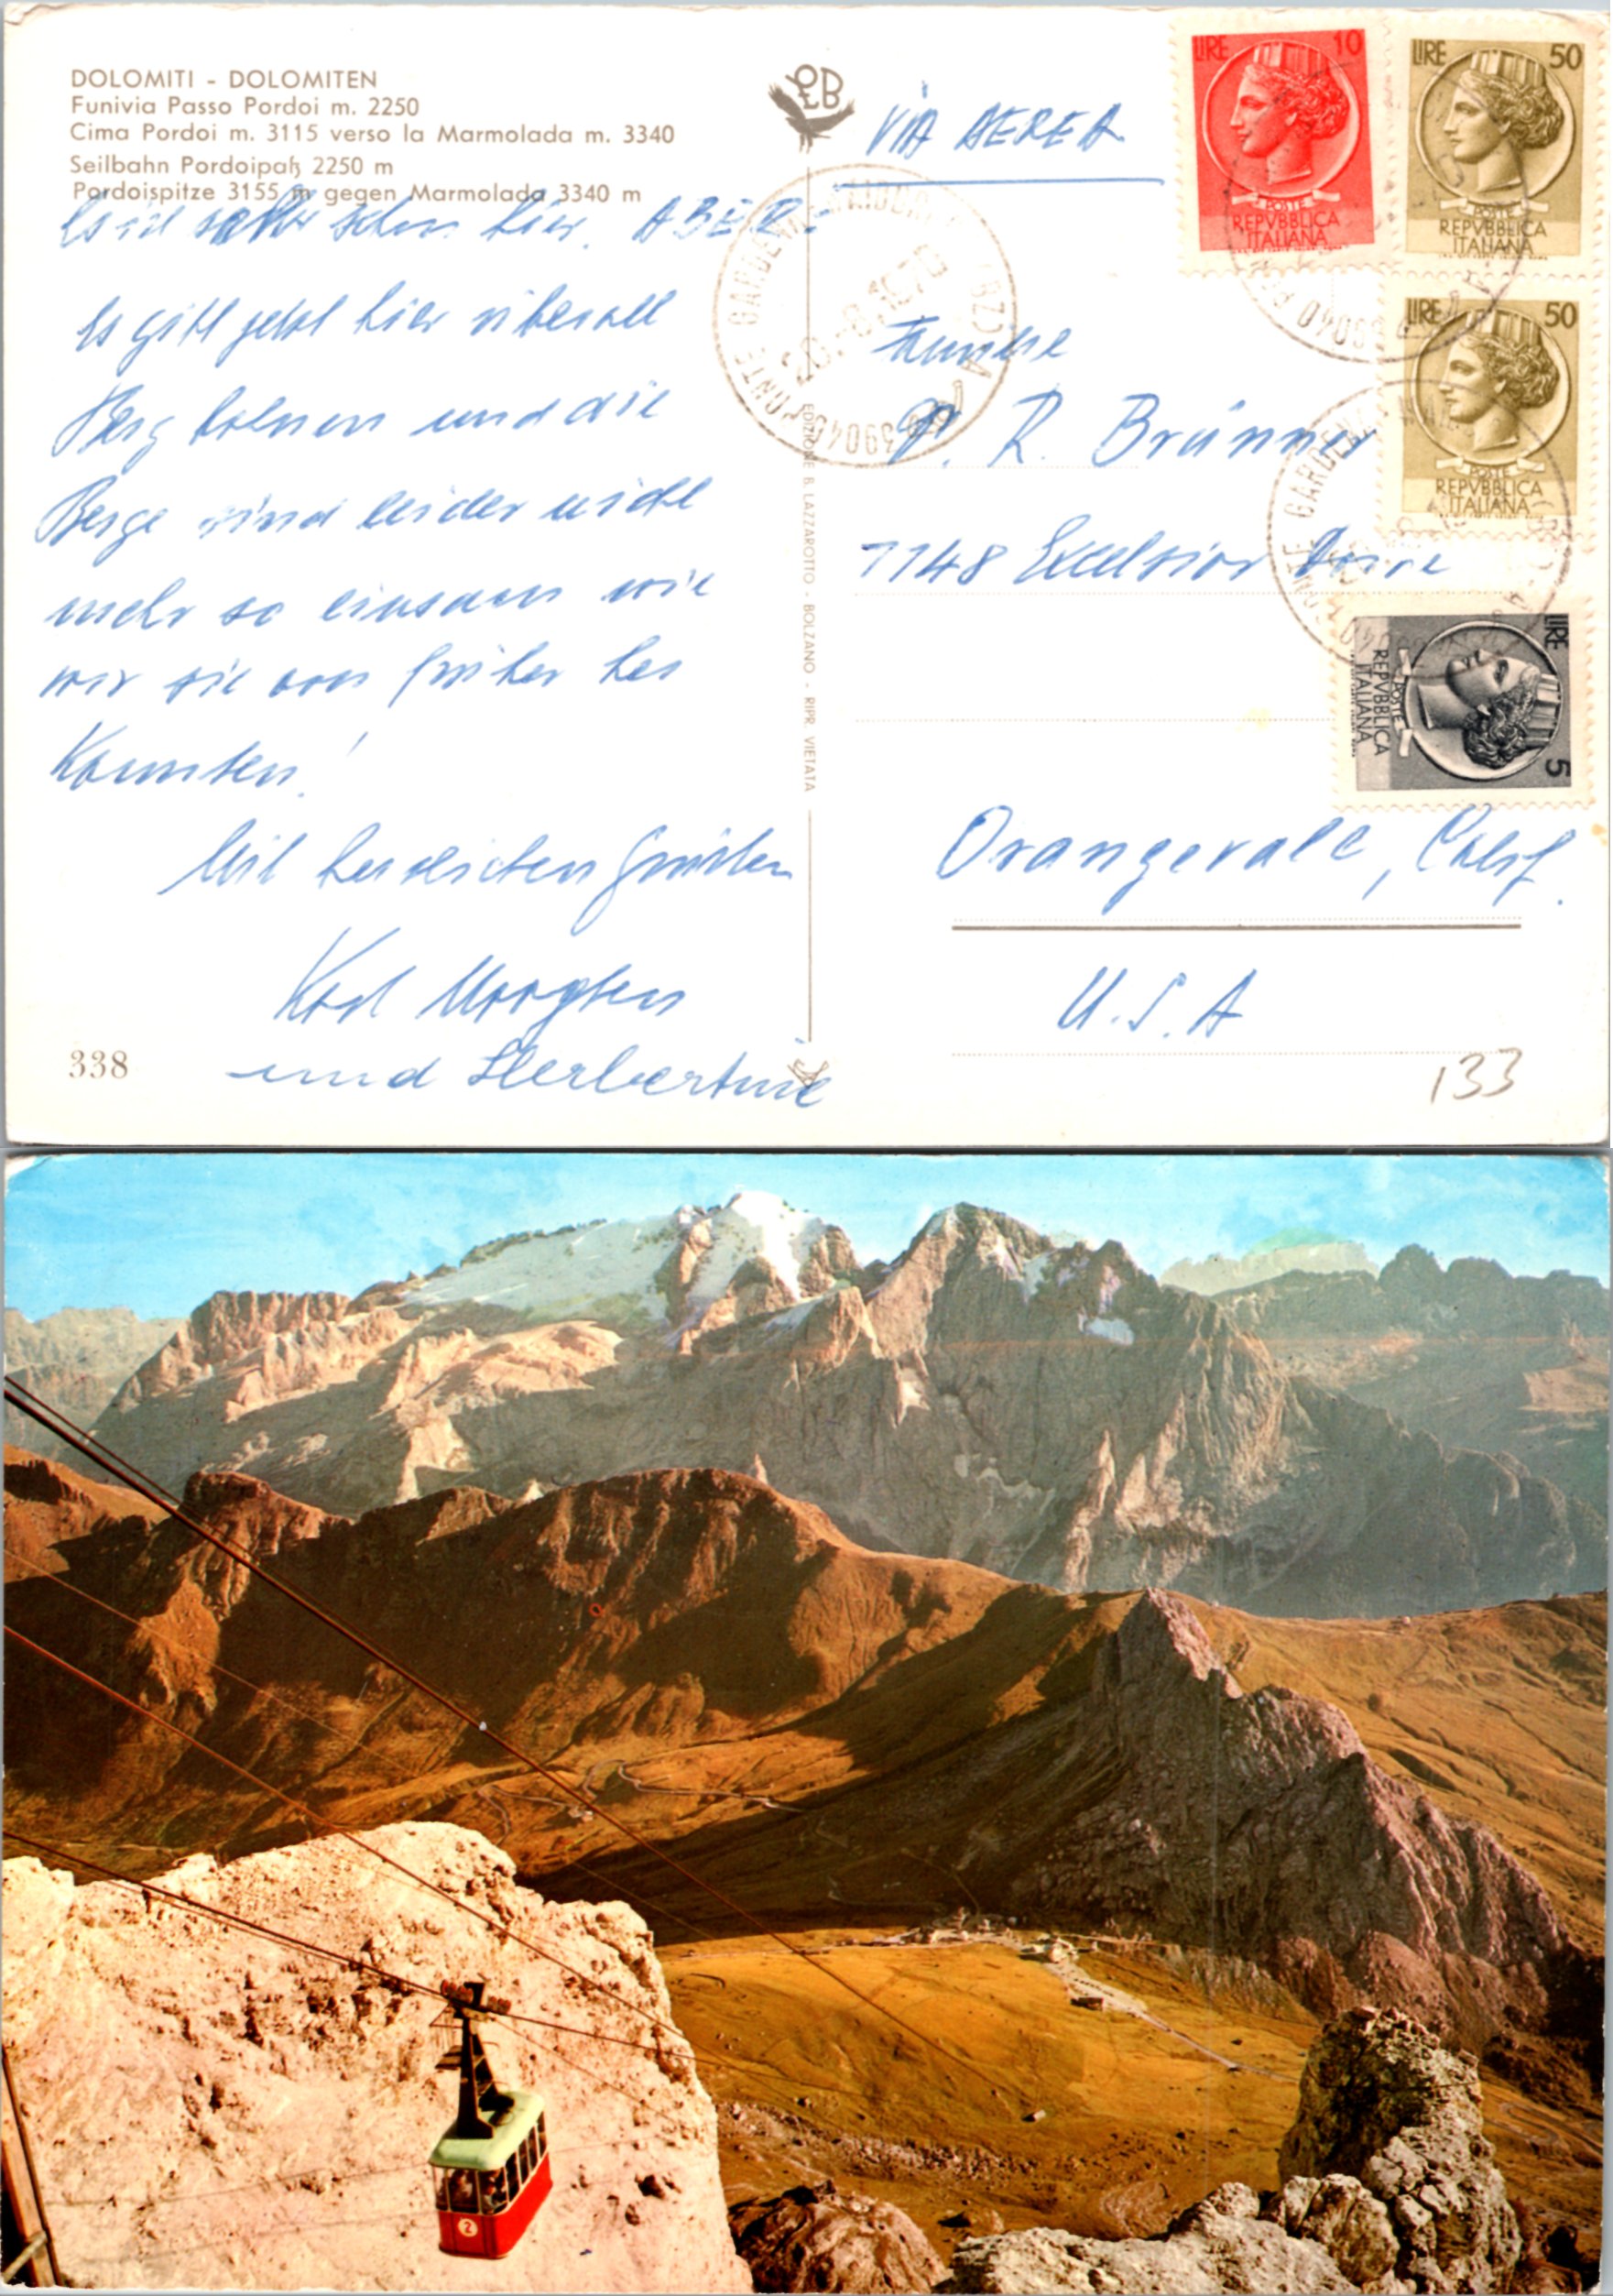 DOLOMITI - DOLOMITEN
Funivia Passo Pordoi m. 2250
Cima Pordoi m. 3115 verso la Marmolada m. 3340
Seilbahn Pordoipaß 2250 m
Pordoispitze 3155 m gegen Marmolada 3340 m
Es ist sehr schön hier. ABER:
Es gibt jetzt hier überall
Berg bahnen und die
Berge sind leider nicht
mehr so einsam wie
wir sie von früher her
kannten!
Mit herzlichen Grüßen
Karl
und Herbertine
338
EDIZIONE B. LAZZAROTTO - BOLZANO - RIPR. VIETATA
VIA AEREA
LIRE 10
POSTE
REPVBBLICA
ITALIANA
LIRE 50
POSTE
REPVBBLICA
ITALIANA
LIRE 50
POSTE
REPVBBLICA
ITALIANA
LIRE 5
POSTE
REPVBBLICA
ITALIANA
39040 PONTE GARDENA (BZ) A
1970
Familie
R. Brünner
7748 Excelsior Drive
Orangevale, Calif.
U.S.A
133
2